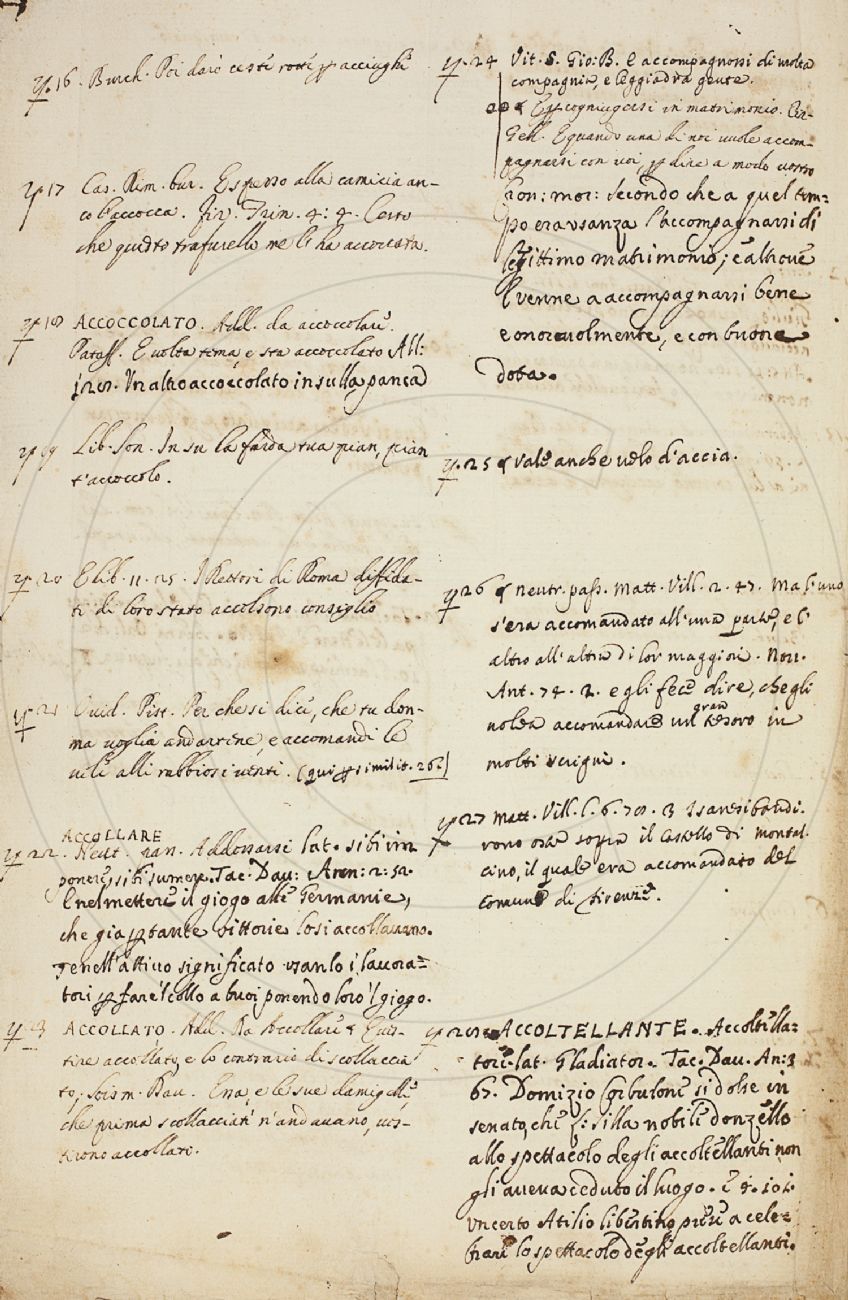 16 . Burch. Poi darò cesti rotti p acciughe
17 Cas. Rim. bur. E spesso alla camicia an-
co l'accocca. Fir. Trin. 4: 4. Certo
che questo trafurello me l'ha accoccata.
18 ACCOCCOLATO. Add. da accoccolare.
Pataff. E volta tema, e sta accoccolato All:
Un altro accoccolato in sulla panca
19 Lib. Son. In su la farda tua pian, pian
t'accoccolo.
20 E lib. 11. 25. I Rettori di Roma diffida-
ti di loro stato accolsono consiglio
21 Ovid. Pist. Per che si dice, che tu don-
ma voglia andartene, e accomandi le
vele alli rabbiosi venti. (qui p similit. 26?)
ACCOLLARE
22 . Neut. Addossarsi lat. sibi im
ponere, sibi sumere. Tac. Dav: Ann: 2: 52.
E nel mettere il giogo alle Germanie,
che gia p tante vittorie losi accollavano.
Tenell'attivo significato usanlo i lavora=
tori p fare'l collo a buoi ponendo loro'l giogo.
23 ACCOLLATO. Add. Da Accollare
accollato, e lo contrario di scollaccia
to; Bau. Ena, e le sue damigelle,
che prima scollacciate n'andavano, ves-
tirono accollato.
24 Vit. S. Gio: B. E accompagnossi di molta
compagnia, e leggiadra gente.
P cogniugnersi in matrimonio. Cir.
Gell. E quando una di noi vuole accom-
pagnarsi con voi, p dire a modo vostro
mor: Secondo che a quel tem=
po era usanza l'accompagnarsi di
legittimo matrimonio; e altrove
E venne a accompagnarsi bene
e onorevolmente, e con buona
dota.
25 Vale anche velo d'accia.
26 neutr. pass. Matt. Vill. 2. 47. Ma l'uno
s'era accomandato all'una parte, e l'
altro all'altra di lor maggiori. Nov.
Ant. 74. 2. e gli fece dire, che gli
volea accomandare un gran tesoro in
molti scrigni.
27 Matt. Vill. l. 6. 3 I sanesi bandi-
rono oste sopra il Castello di Montal-
cino, il quale era accomandato del
Comune di Firenze.
ACCOLTELLANTE. Accoltella=
tore. lat. Gladiator. Tac. Dav. An: 3
67. Domizio Corbulone si dolse in
senato, che L: Silla nobile donzello
allo spettacolo degli accoltellanti non
gli aveva ceduto il luogo. E 4. 101.
Un certo Atilio libertino prese a cele=
brare lo spettacolo degli accoltellanti.